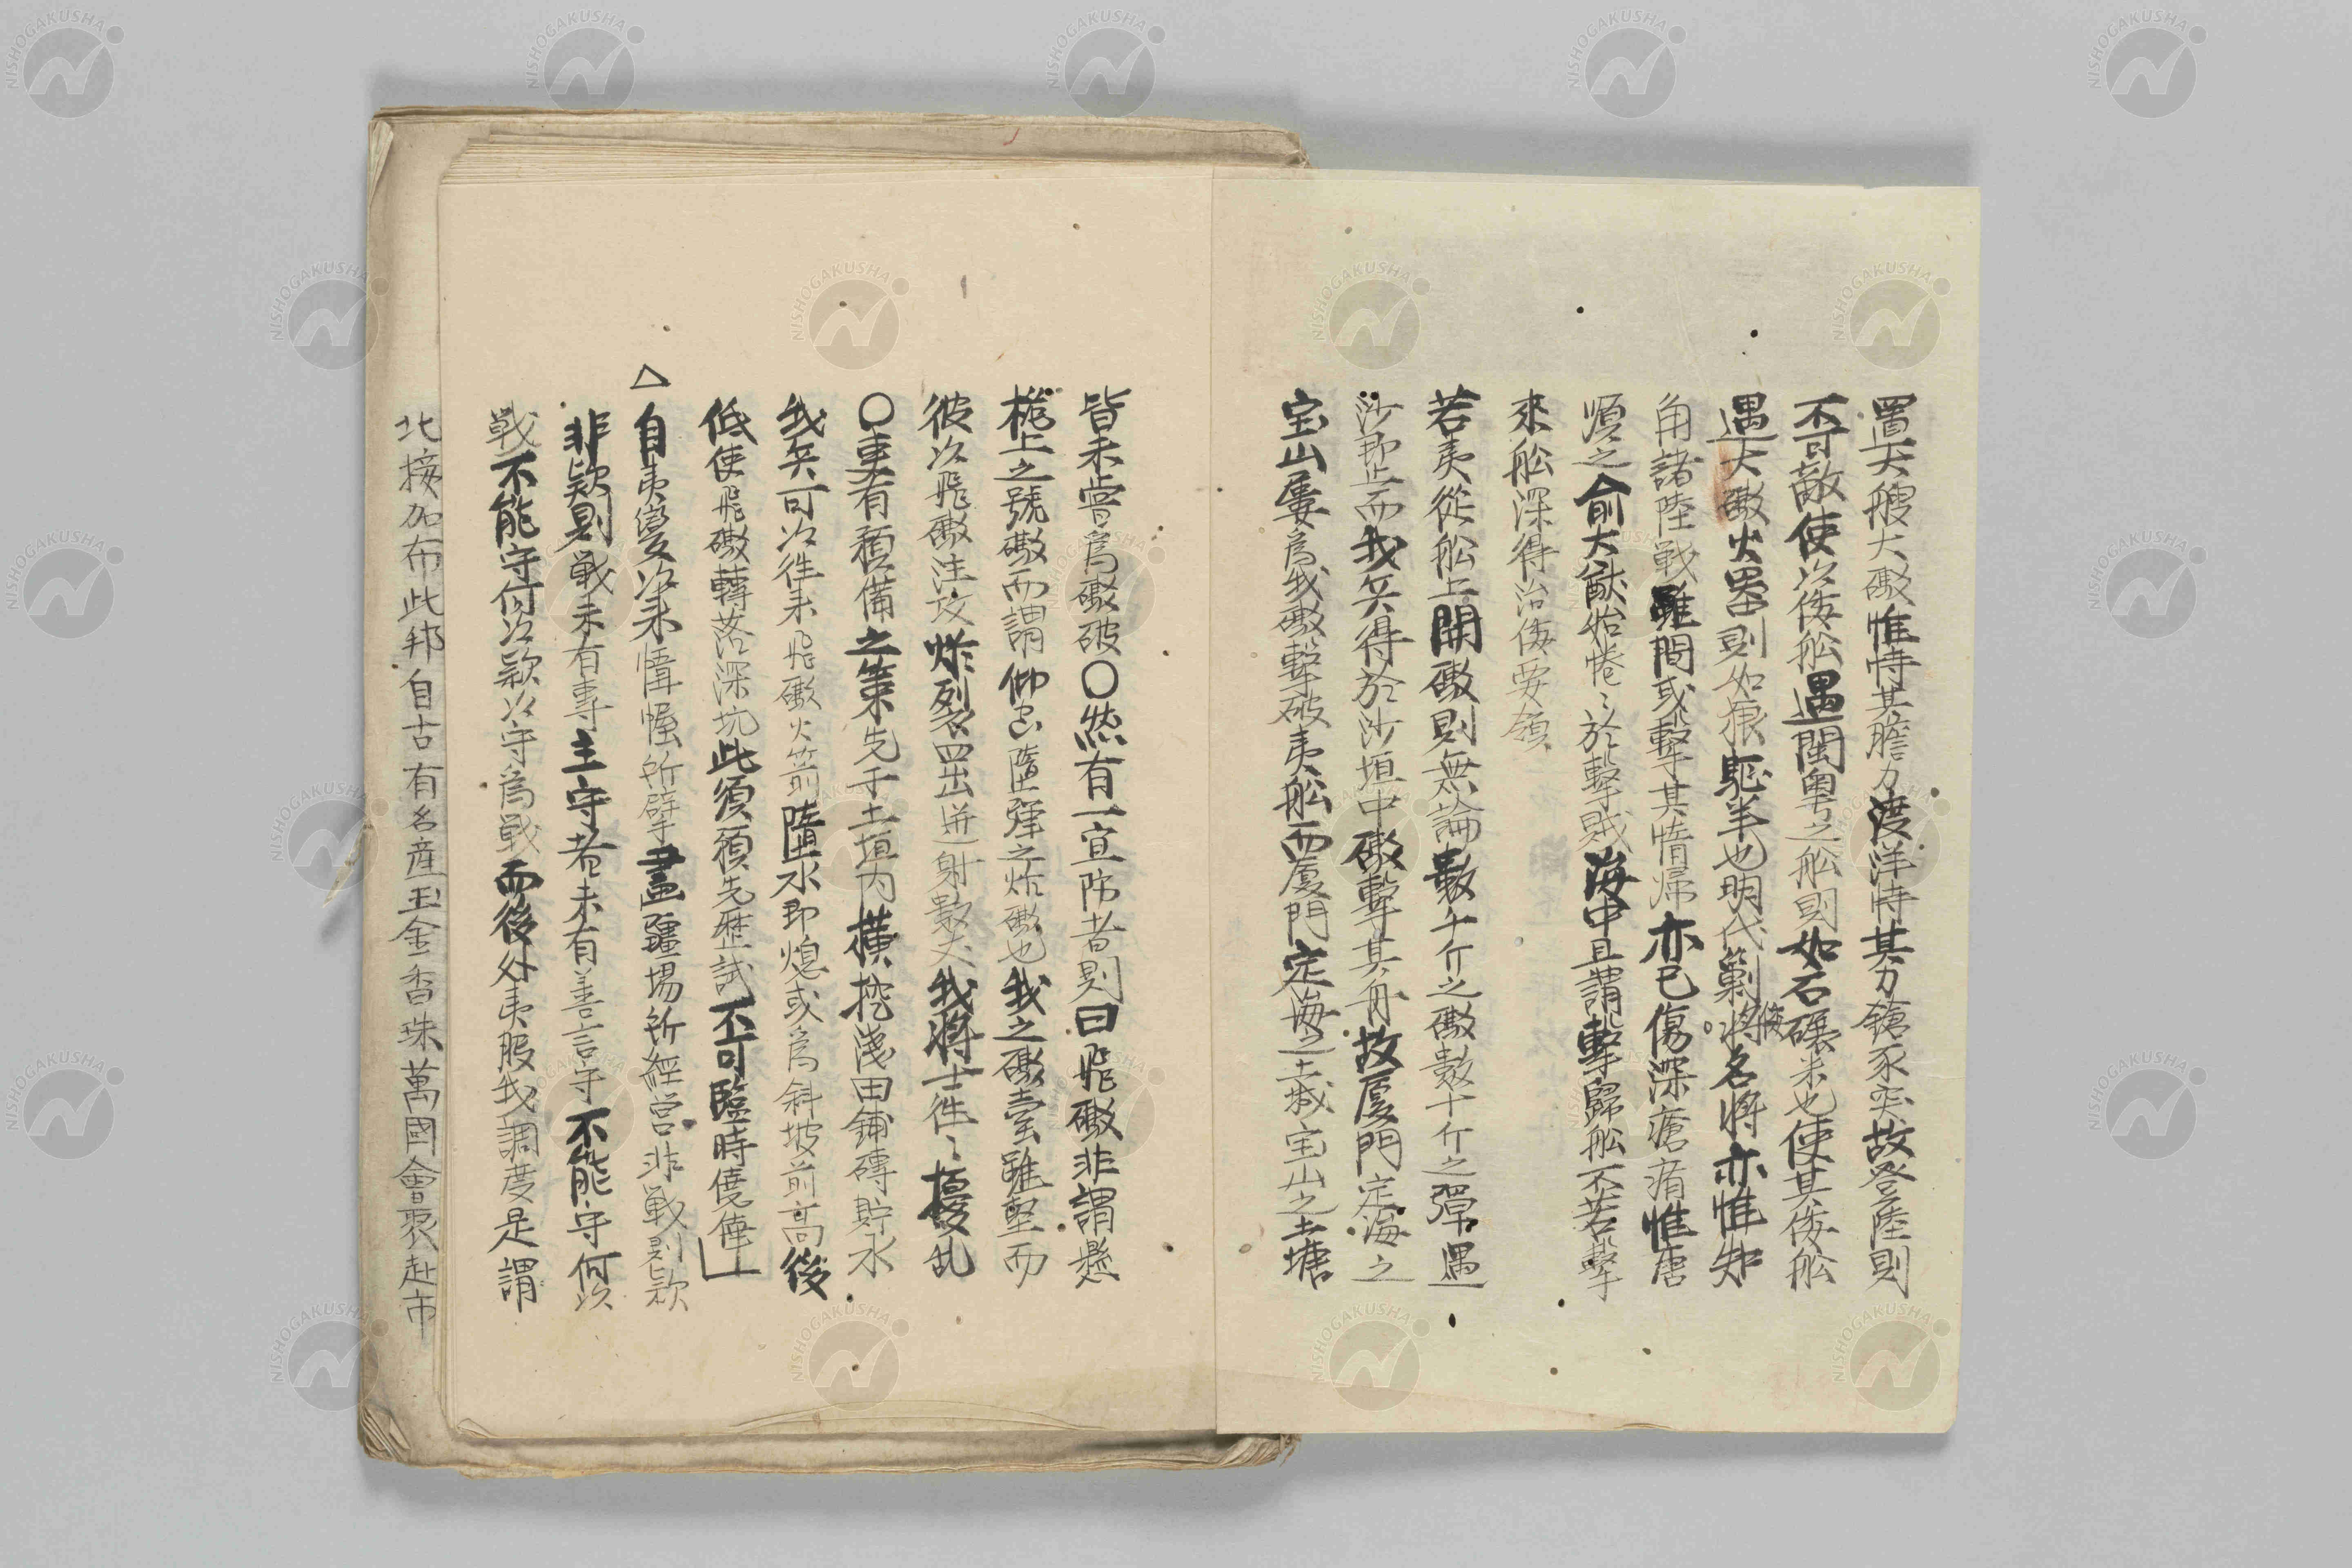 置大艘大礟惟恃其膽力渡洋恃其力鎗豕突故登陸則
不可敵使以倭舩遇閩粵之舩則如石碾米也使其倭舩
遇大礟火器則如狼駈羊也明代剿倭将名将亦惟知
角諸陸戦雖間或擊其惰歸亦已傷深瘡痏惟唐
順之俞大猷始惓〻於擊賊海中且謂擊歸舩不若擊
來舩深得治倭要領
若夷從舩上開礟則無論數千斤之礟數十斤之彈遇
沙即止而我兵得於沙垣中礟擊其舟故厦門定海之
宝山屢為我礟擊破夷舩而厦門定海之土城宝山之土塘
皆未嘗為礟破〇然有一宜防者則曰飛礟非謂懸
桅上之號礟而謂仰空墮彈之炸礟也我之礟臺雖堅而
彼以飛礟注攻炸裂四出迸射數丈我將士往〻擾乱
〇更有預備之策先于土垣内横挖淺田鋪磚貯水
我兵可以往来飛礟火箭墮水即熄或為斜坡前高後
低使飛礟轉落深坑此須預先歴試不可臨時僥倖」
△自夷變以来幃幄所擘畫疆場所經営非戦則款
非款則戦未有専主守者未有善言守不能守何以
戦不能守何以款以守為戦而後外夷服我調度是謂
北接加布此邦自古有名産玉金香珠萬國會聚赴市